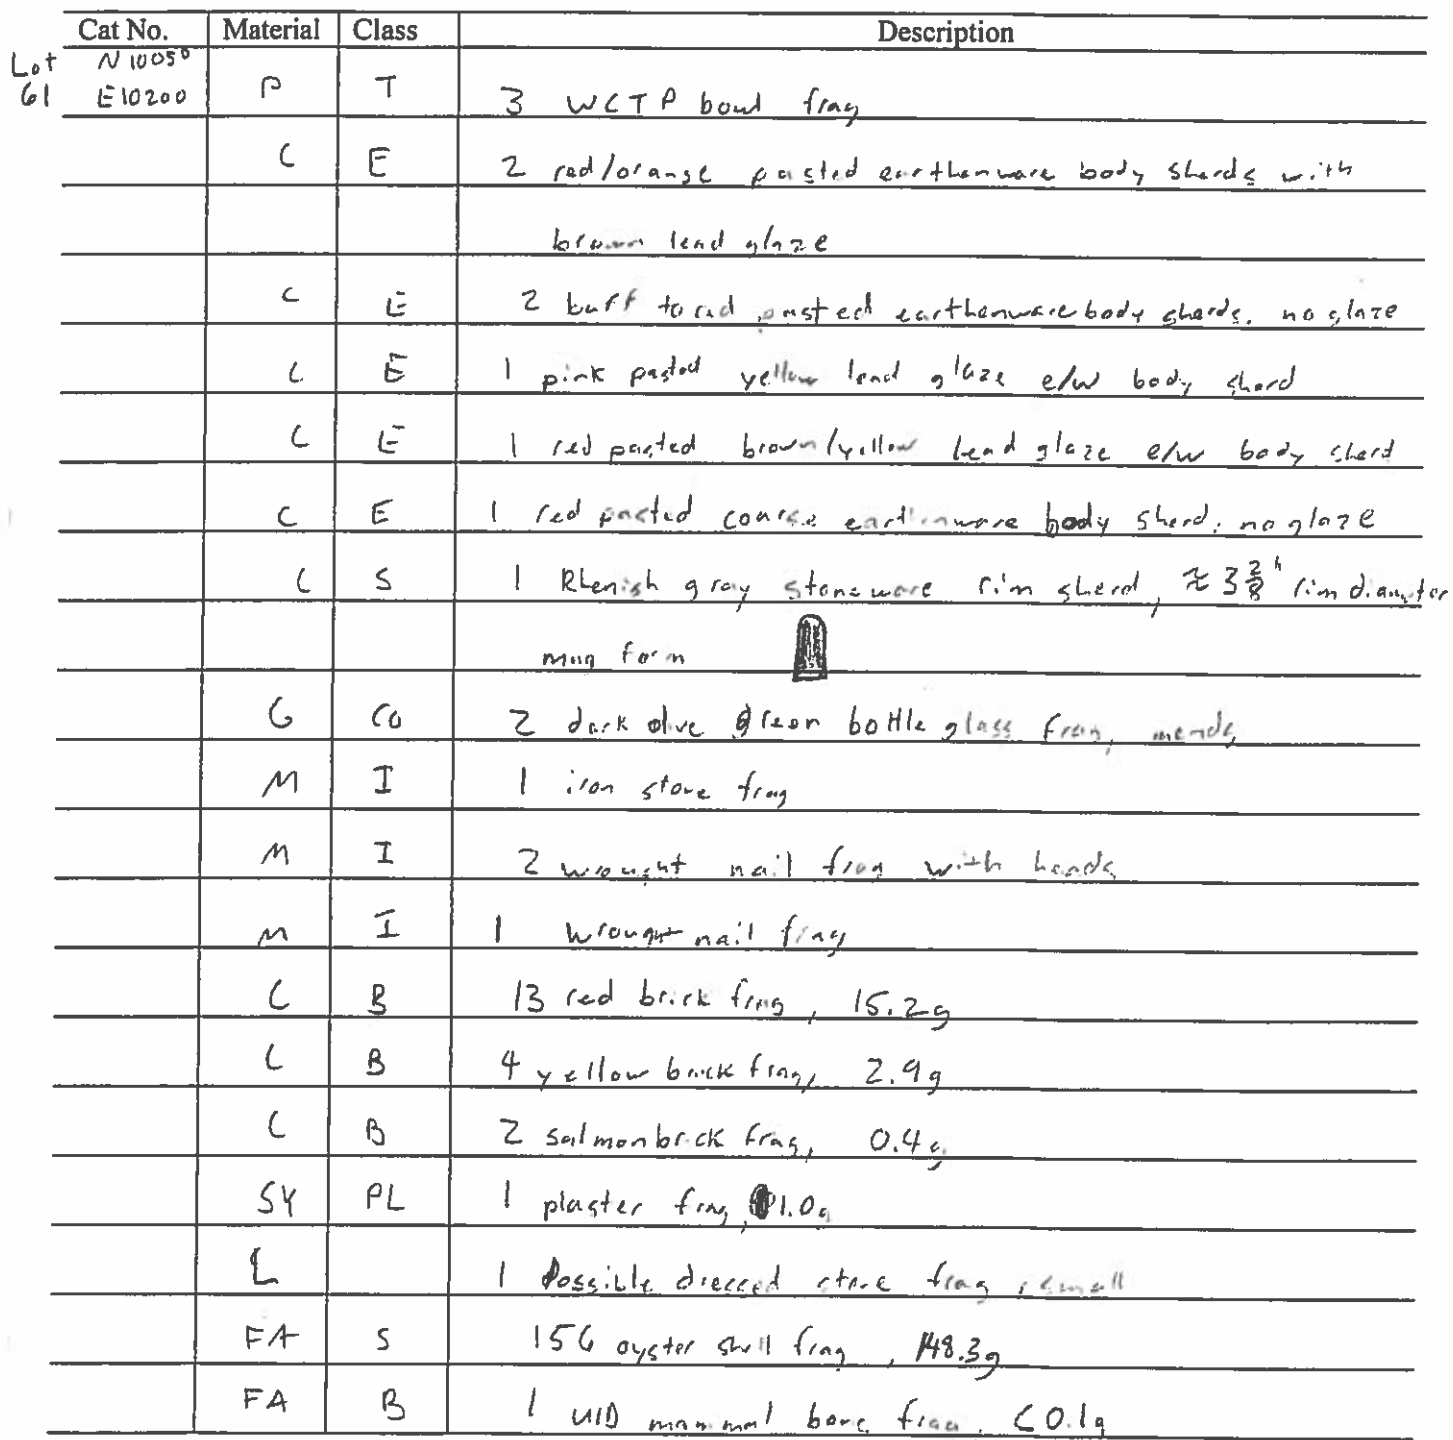 Cat No. Material Class Description
Lot 61 N10050 E10200 P T 3 WCTP bowl frag
C E 2 red/orange pasted earthenware body sherds with
brown lead glaze
C E 2 buff to red pasted earthenware body sherds, no glaze
C E 1 pink pasted yellow lead glaze e/w body sherd
C E 1 red pasted brown/yellow lead glaze e/w body sherd
C E 1 red pasted coarse earthenware body sherd, no glaze
C S 1 Rhenish gray stoneware rim sherd, ≈ 3 2/8" rim diameter
mug form
G CU 2 dark olive green bottle glass frag, mends
M I 1 iron stove frag
M I 2 wrought nail frag with heads
M I 1 wrought nail frag
C B 13 red brick frag, 15.2g
C B 4 yellow brick frag, 2.9g
C B 2 salmon brick frag, 0.4g
SY PL 1 plaster frag, 1.0g
L 1 Possible dressed stone frag, small
FA S 156 oyster shell frag, 148.3g
FA B 1 UID mammal bone frag, <0.1g